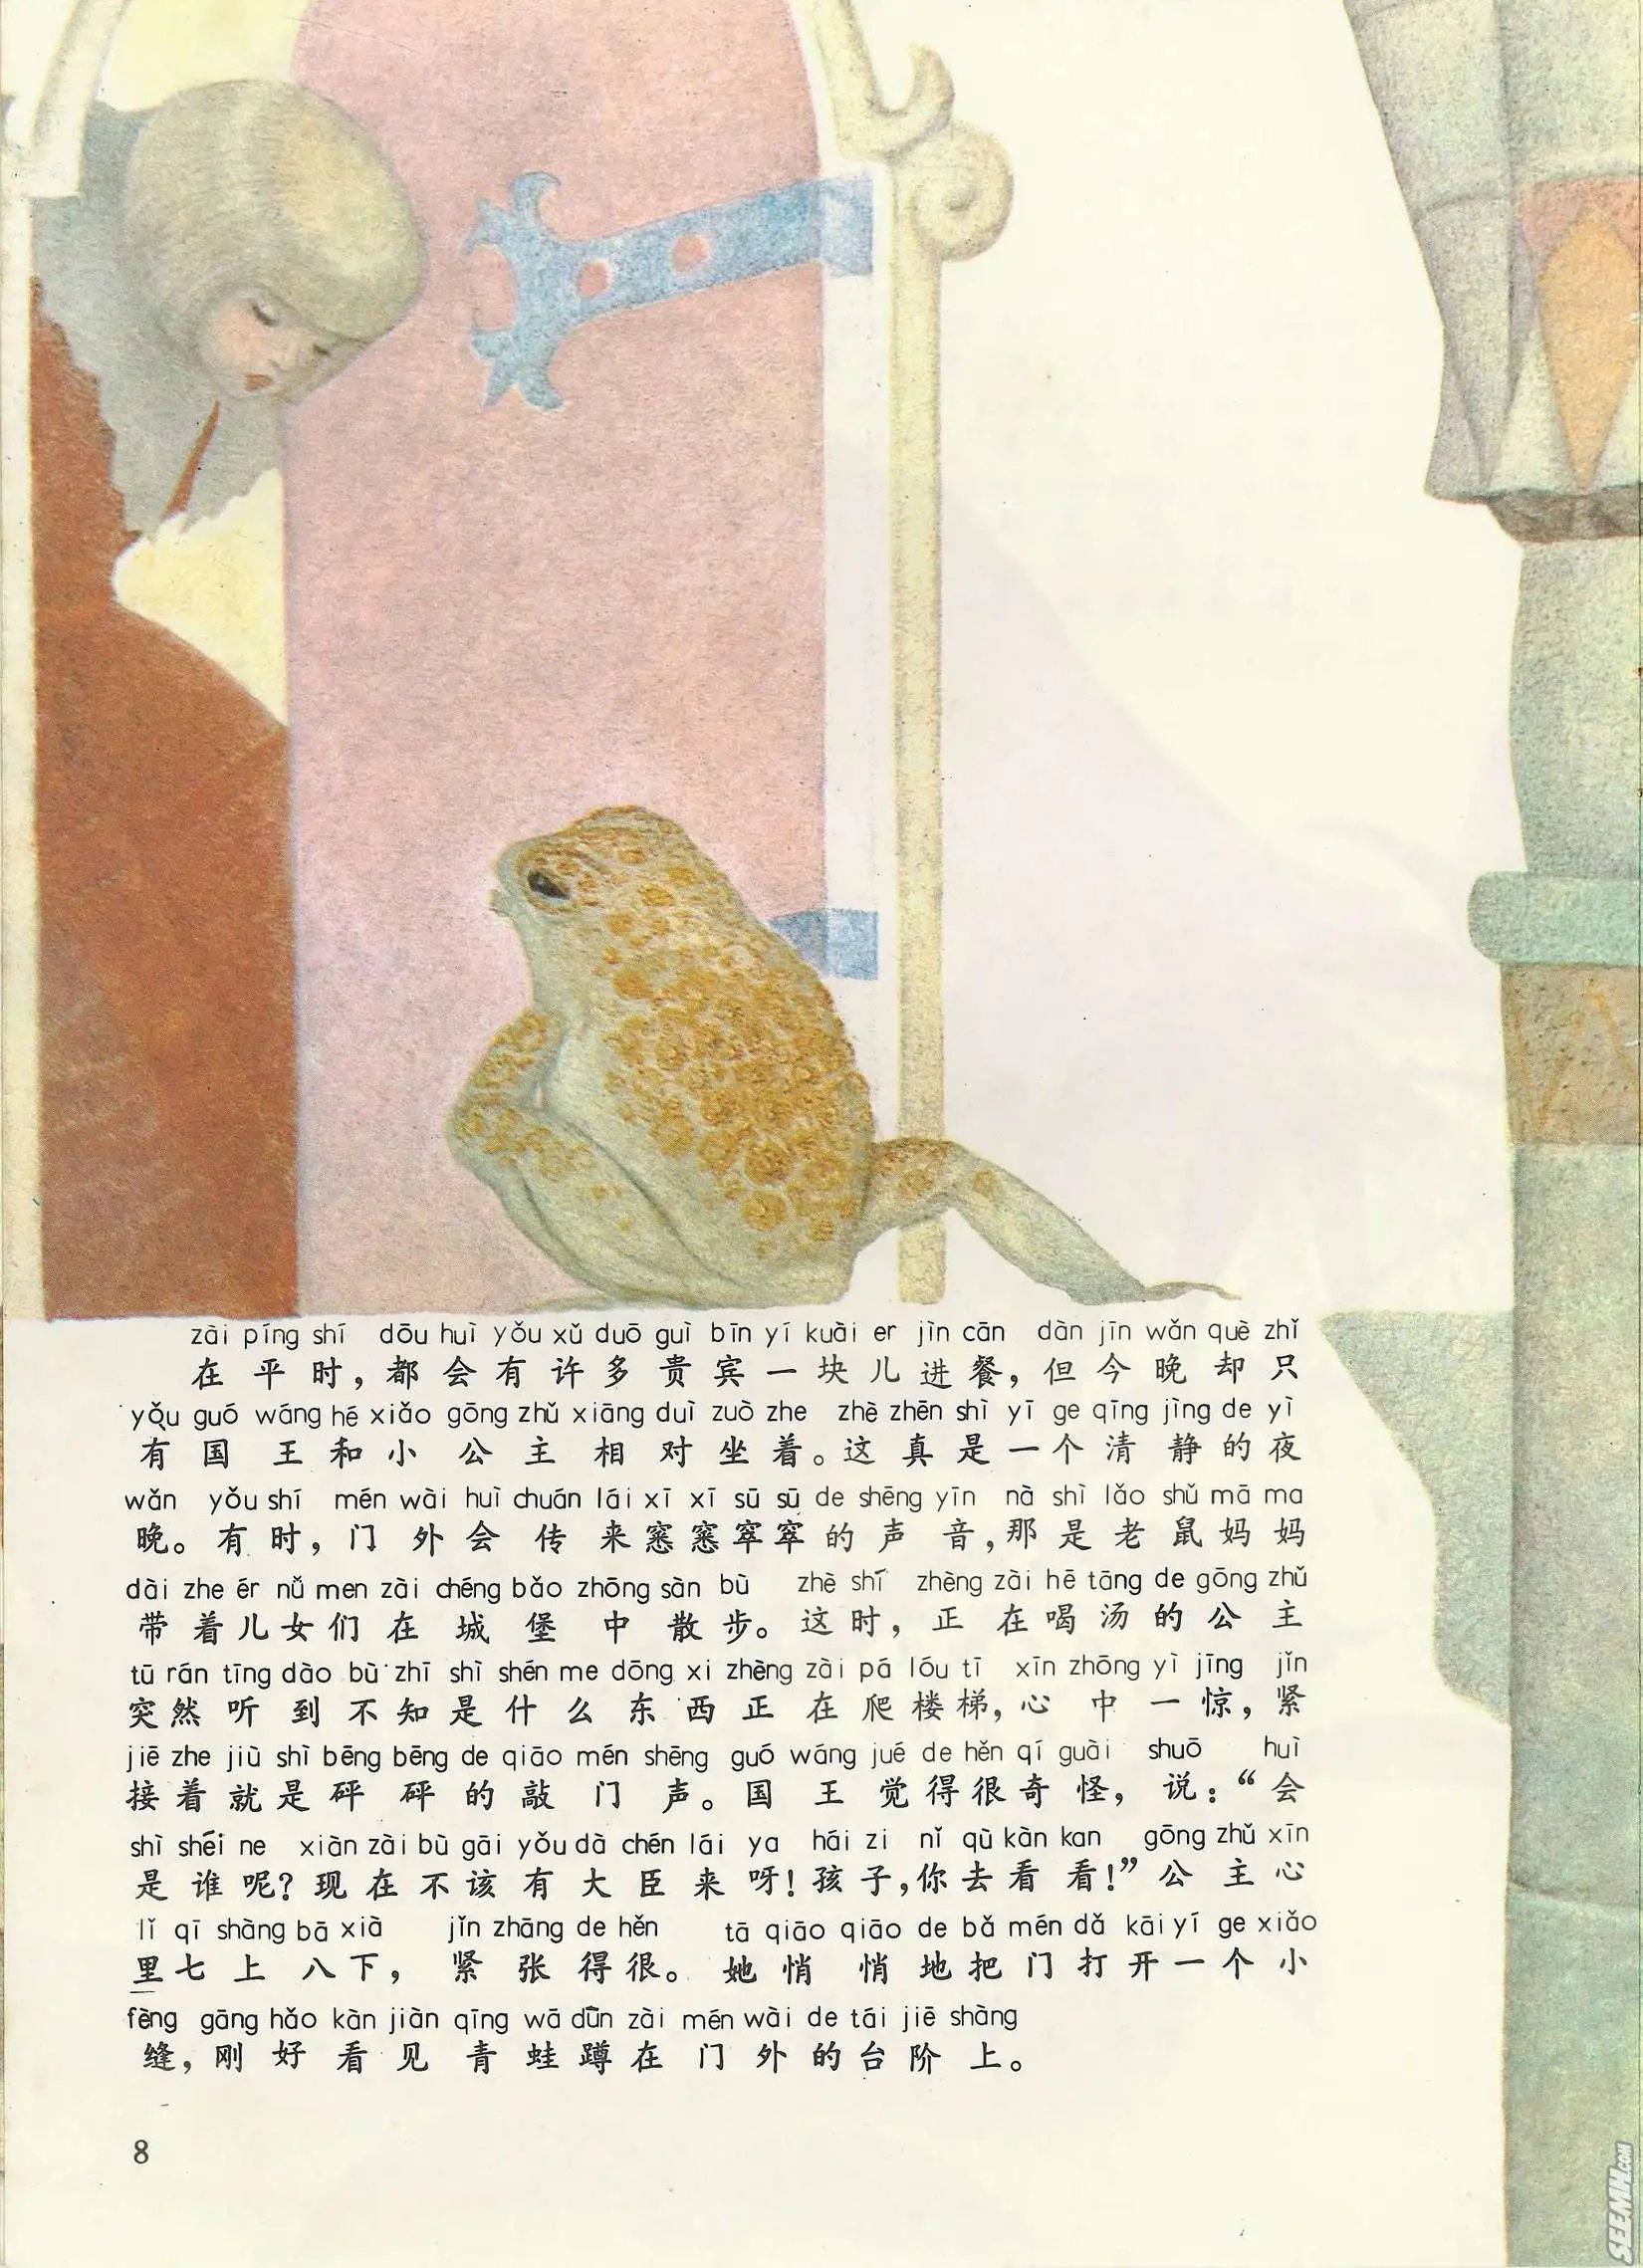 zài píng shí dōu huì yǒu xǔ duō guì bīn yí kuài er jìn cān dàn jīn wǎn què zhǐ
在平时，都会有许多贵宾一块儿进餐，但今晚却只
yǒu guó wáng hé xiǎo gōng zhǔ xiāng duì zuò zhe zhè zhēn shì yī ge qīng jìng de yì
有国王和小公主相对坐着。这真是一个清静的夜
wǎn yǒu shí mén wài huì chuán lái xī xī sū sū de shēng yīn nà shì lǎo shǔ mā ma
晚。有时，门外会传来窸窸窣窣的声音，那是老鼠妈妈
dài zhe ér nǚ men zài chéng bǎo zhōng sàn bù zhè shí zhèng zài hē tāng de gōng zhǔ
带着儿女们在城堡中散步。这时，正在喝汤的公主
tū rán tīng dào bù zhī shì shén me dōng xi zhèng zài pá lóu tī xīn zhōng yì jīng jǐn
突然听到不知是什么东西正在爬楼梯，心中一惊，紧
jiē zhe jiù shì bēng bēng de qiāo mén shēng guó wáng jué de hěn qí guài shuō huì
接着就是砰砰的敲门声。国王觉得很奇怪，说：“会
shì shéi ne xiàn zài bù gāi yǒu dà chén lái ya hái zi nǐ qù kàn kan gōng zhǔ xīn
是谁呢？现在不该有大臣来呀！孩子，你去看看！”公主心
lǐ qī shàng bā xià jǐn zhāng de hěn tā qiāo qiāo de bǎ mén dǎ kāi yí ge xiǎo
里七上八下，紧张得很。她悄悄地把门打开一个小
fèng gāng hǎo kàn jiàn qīng wā dūn zài mén wài de tái jiē shàng
缝，刚好看见青蛙蹲在门外的台阶上。
8
SEEMH.COM